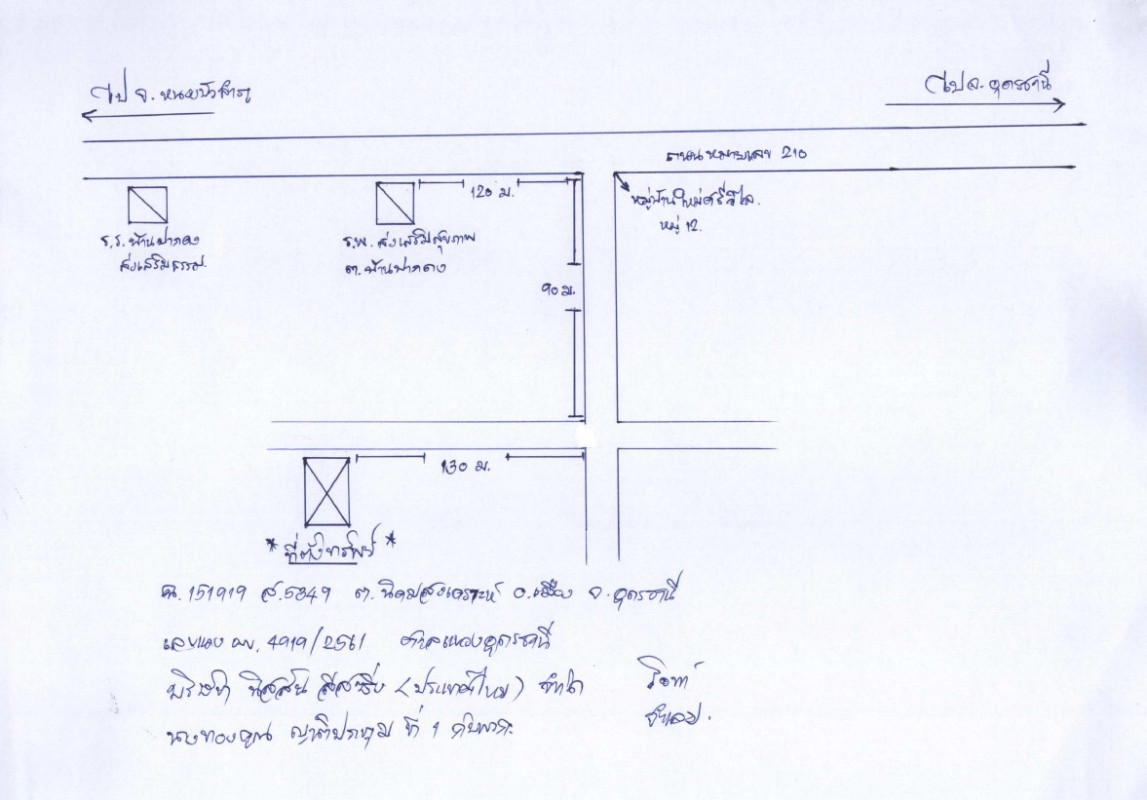 ไป จ. หนองบัวลำภู
ไป จ. อุดรธานี
ถนน หมายเลข 210
120 ม.
หมู่บ้านใหม่ศรีวิไล.
หมู่ 12.
ร.ร. บ้านผาตอ
ส่งเสริมธรรม
ร.พ. ส่งเสริมสุขภาพ
ต. บ้านผาตอ
90 ม.
130 ม.
* ที่ตั้งทรัพย์ *
ฉ. 151919 ส.5349 ต. นิคมสงเคราะห์ อ.เมือง จ. อุดรธานี
เลขแดง ผบ. 4919/2561 ศาลแขวงอุดรธานี
บริษัท นิสสัน ลีสซิ่ง (ประเทศไทย) จำกัด โจทก์
นางทองคูณ ญาติประทุม ที่ 1 กับพวก จำเลย.